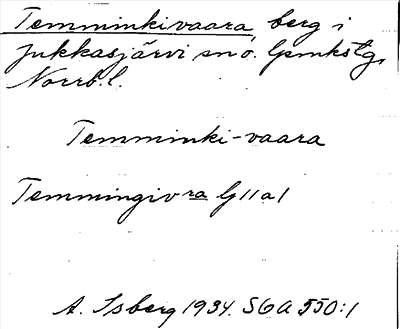 Temminkivaara, berg i
Jukkasjärvi sn o. lpmkstg,
Norrb. l.
Temminki-vaara
Temmingivra G11a1
A. Isberg 1934. SOA 550:1